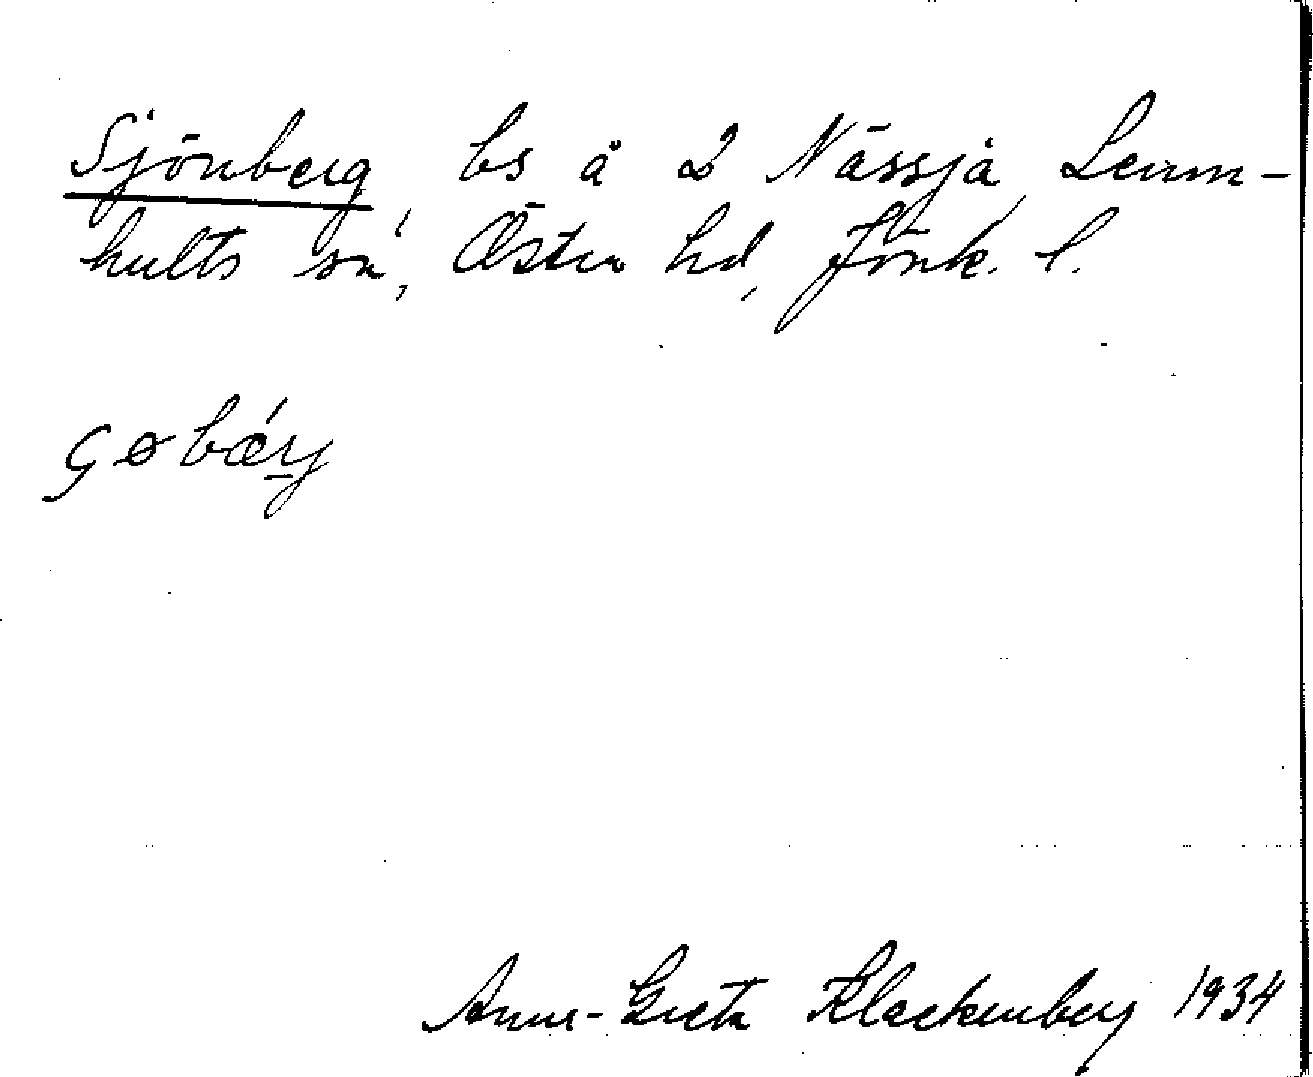 Sjönberg, bs å 2 Nässjå, Lemm-
hults sn, Östra hd, Jönk. l.
Anna-Greta Klackenberg 1934